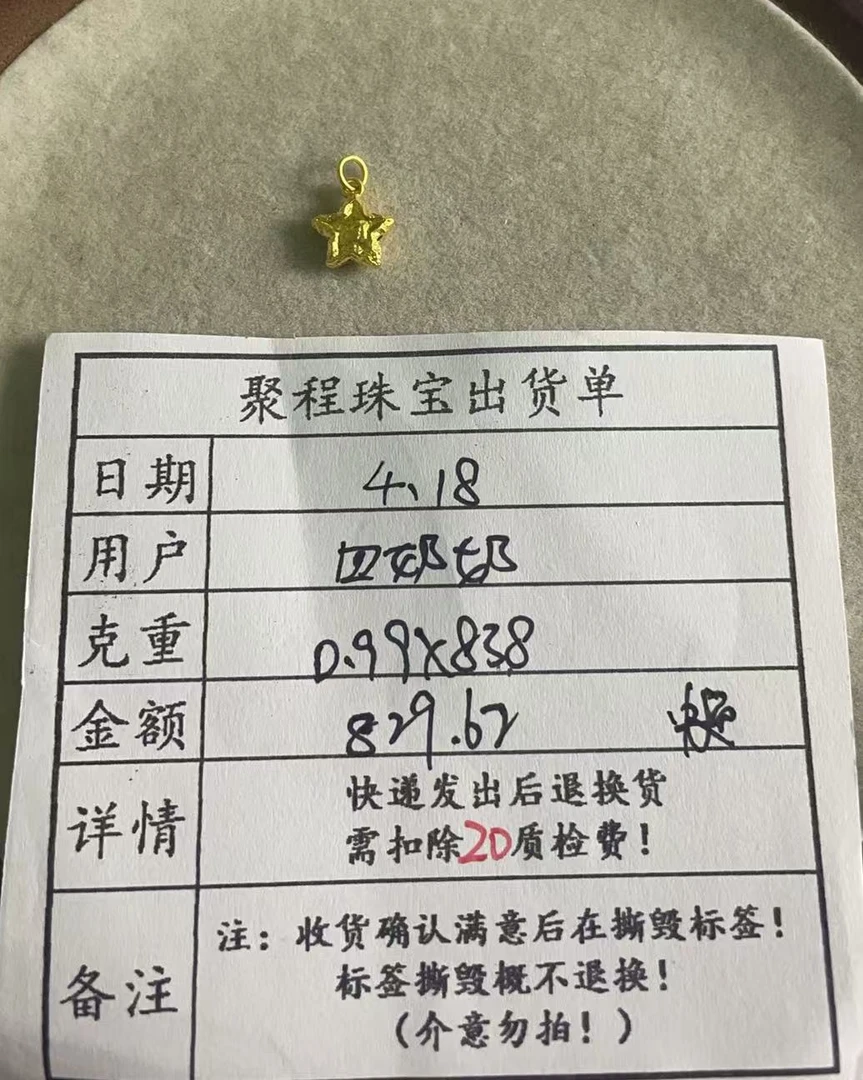 聚程珠宝出货单
日期 4.18
用户
克重 0.99X838
金额 829.62
详情 快递发出后退换货
需扣除20质检费！
备注 注：收货确认满意后在撕毁标签！
标签撕毁概不退换！
（介意勿拍！）